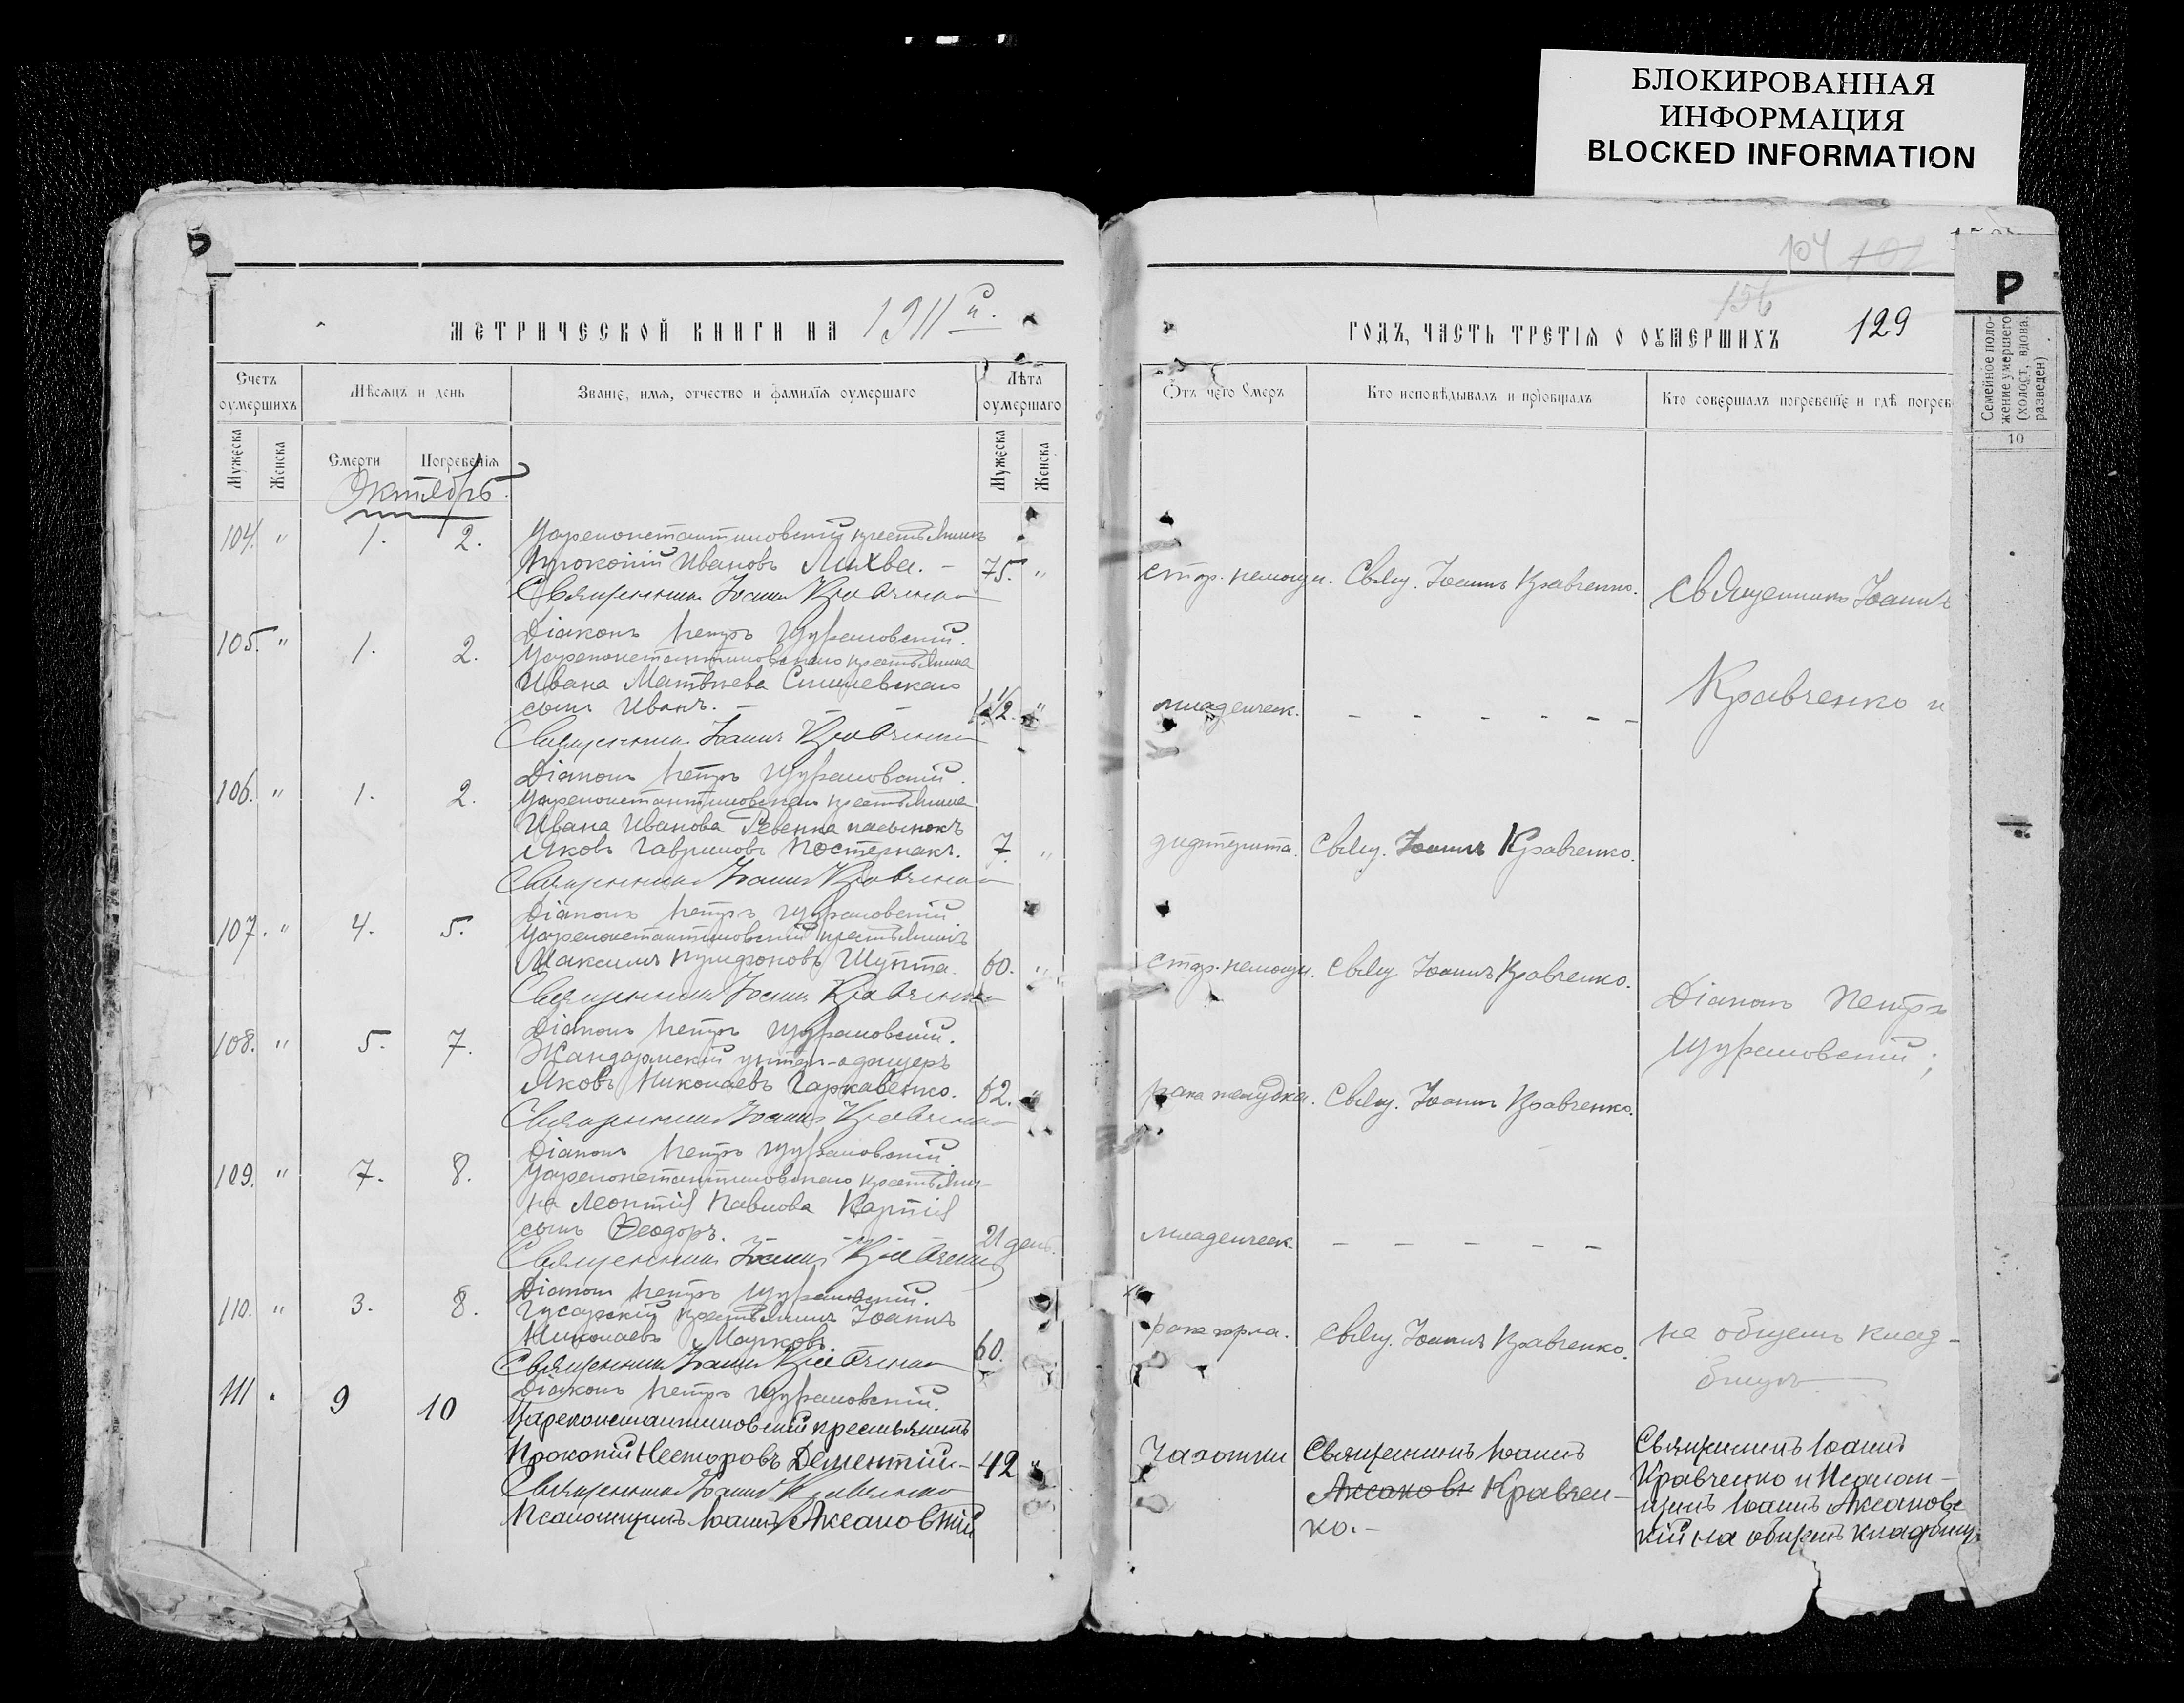 БЛОКИРОВАННАЯ
ИНФОРМАЦИЯ
BLOCKED INFORMATION
Р
МЕТРИЧЕСКОЙ КНИГИ НА 1911 й.
Счетъ оумершихъ
Мѣсяцъ и день
Званіе, имя, отчество и фамилія оумершаго
Лѣта оумершаго
Мужеска
Женска
Смерти
Погребенія
Мужеска
Женска
Октябрь.
104. " 1. 2. Цареконстантиновскій крестьянинъ
Прокопій Ивановъ Лихва. - 75. "
Священникъ Іоаннъ Кравченко
Діаконъ Петръ
105. " 1. 2. Цареконстантиновскаго крестьянина
Ивана Матвѣева
сынъ Иванъ. - - - 1 1/2. "
Священникъ Іоаннъ Кравченко
Діаконъ Петръ
106. " 1. 2. Цареконстантиновскаго крестьянина
Ивана Иванова Ревенка пасынокъ
Яковъ Гавриловъ Постернакъ. 7. "
Священникъ Іоаннъ Кравченко
Діаконъ Петръ
107. " 4. 5. Цареконстантиновскій крестьянинъ
Максимъ 60. "
Священникъ Іоаннъ Кравченко
Діаконъ Петръ
108. " 5. 7. Жандармскій унтеръ-офицеръ
Яковъ Николаевъ Гаркавенко. 62. "
Священникъ Іоаннъ Кравченко
Діаконъ Петръ
109. " 7. 8. Цареконстантиновскаго крестьяни-
на Леонтія Павлова
сынъ Ѳеодоръ. - - - 21 ден.
Священникъ Іоаннъ Кравченко
Діаконъ Петръ
110. " 3. 8. Гусарскій крестьянинъ Іоаннъ
Николаевъ Марковъ. 60.
Священникъ Іоаннъ Кравченко
Діаконъ Петръ
111 " 9 10 Цареконстантиновскій крестьянинъ
Прокопій Несторовъ Дементій- 42 "
Священникъ Іоаннъ Кравченко
Псаломщикъ Іоаннъ Аксановскій
104 102
156
ГОДЪ, ЧАСТЬ ТРЕТІЯ О ОУМЕРШИХЪ 129
Отъ чего Умеръ
Кто исповѣдывалъ и пріобщалъ
Кто совершалъ погребеніе и гдѣ погреб
Р
Семейное поло-
жение умершего
(холост, вдова,
разведен)
10
стар. немощи. Свящ. Іоаннъ Кравченко.
Священникъ Іоаннъ
младенческ. - - - - - -
Кравченко и
дифтерита. Свящ. Іоаннъ Кравченко.
стар. немощи. Свящ Іоаннъ Кравченко.
Діаконъ Петръ
рака желудка. Свящ. Іоаннъ Кравченко.
младенческ. - - - - -
рака горла. Свящ. Іоаннъ Кравченко.
на общемъ клад-
бищѣ
Чахотки Священникъ Іоаннъ
Кравчен-
ко.-
Священникъ Іоаннъ
Кравченко и Псалом-
щикъ Іоаннъ Аксановс
кій на общемъ кладбищ